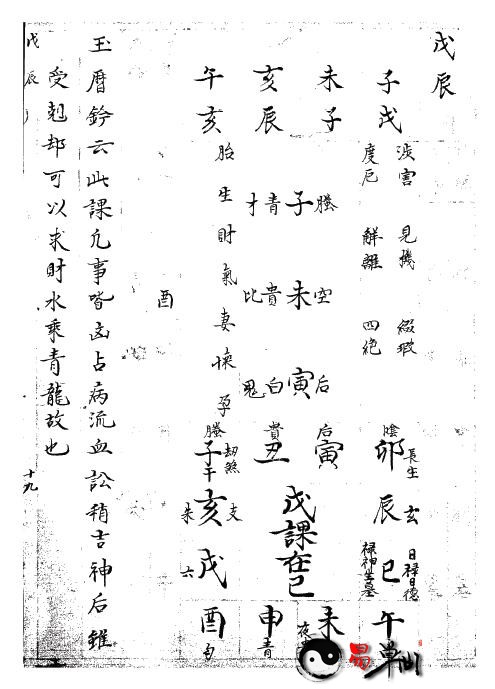 戊辰
子戌
未子
亥辰
午亥
涉害 見機 綴瑕
度厄 解離 四絕
才青子螣
比貴未空
鬼白寅后
胎生財氣妻懷孕
酉
陰卯長生
后寅
貴丑
螣子劫煞
辰玄
巳日祿日德
祿神坐墓
午
夜
未
申青
酉勾
六戌
朱亥支
戊課在巳
玉曆鈐云此課凡事皆凶占病流血訟稍吉神后雖
受剋却可以求財水乘青龍故也
戊辰
十九
易